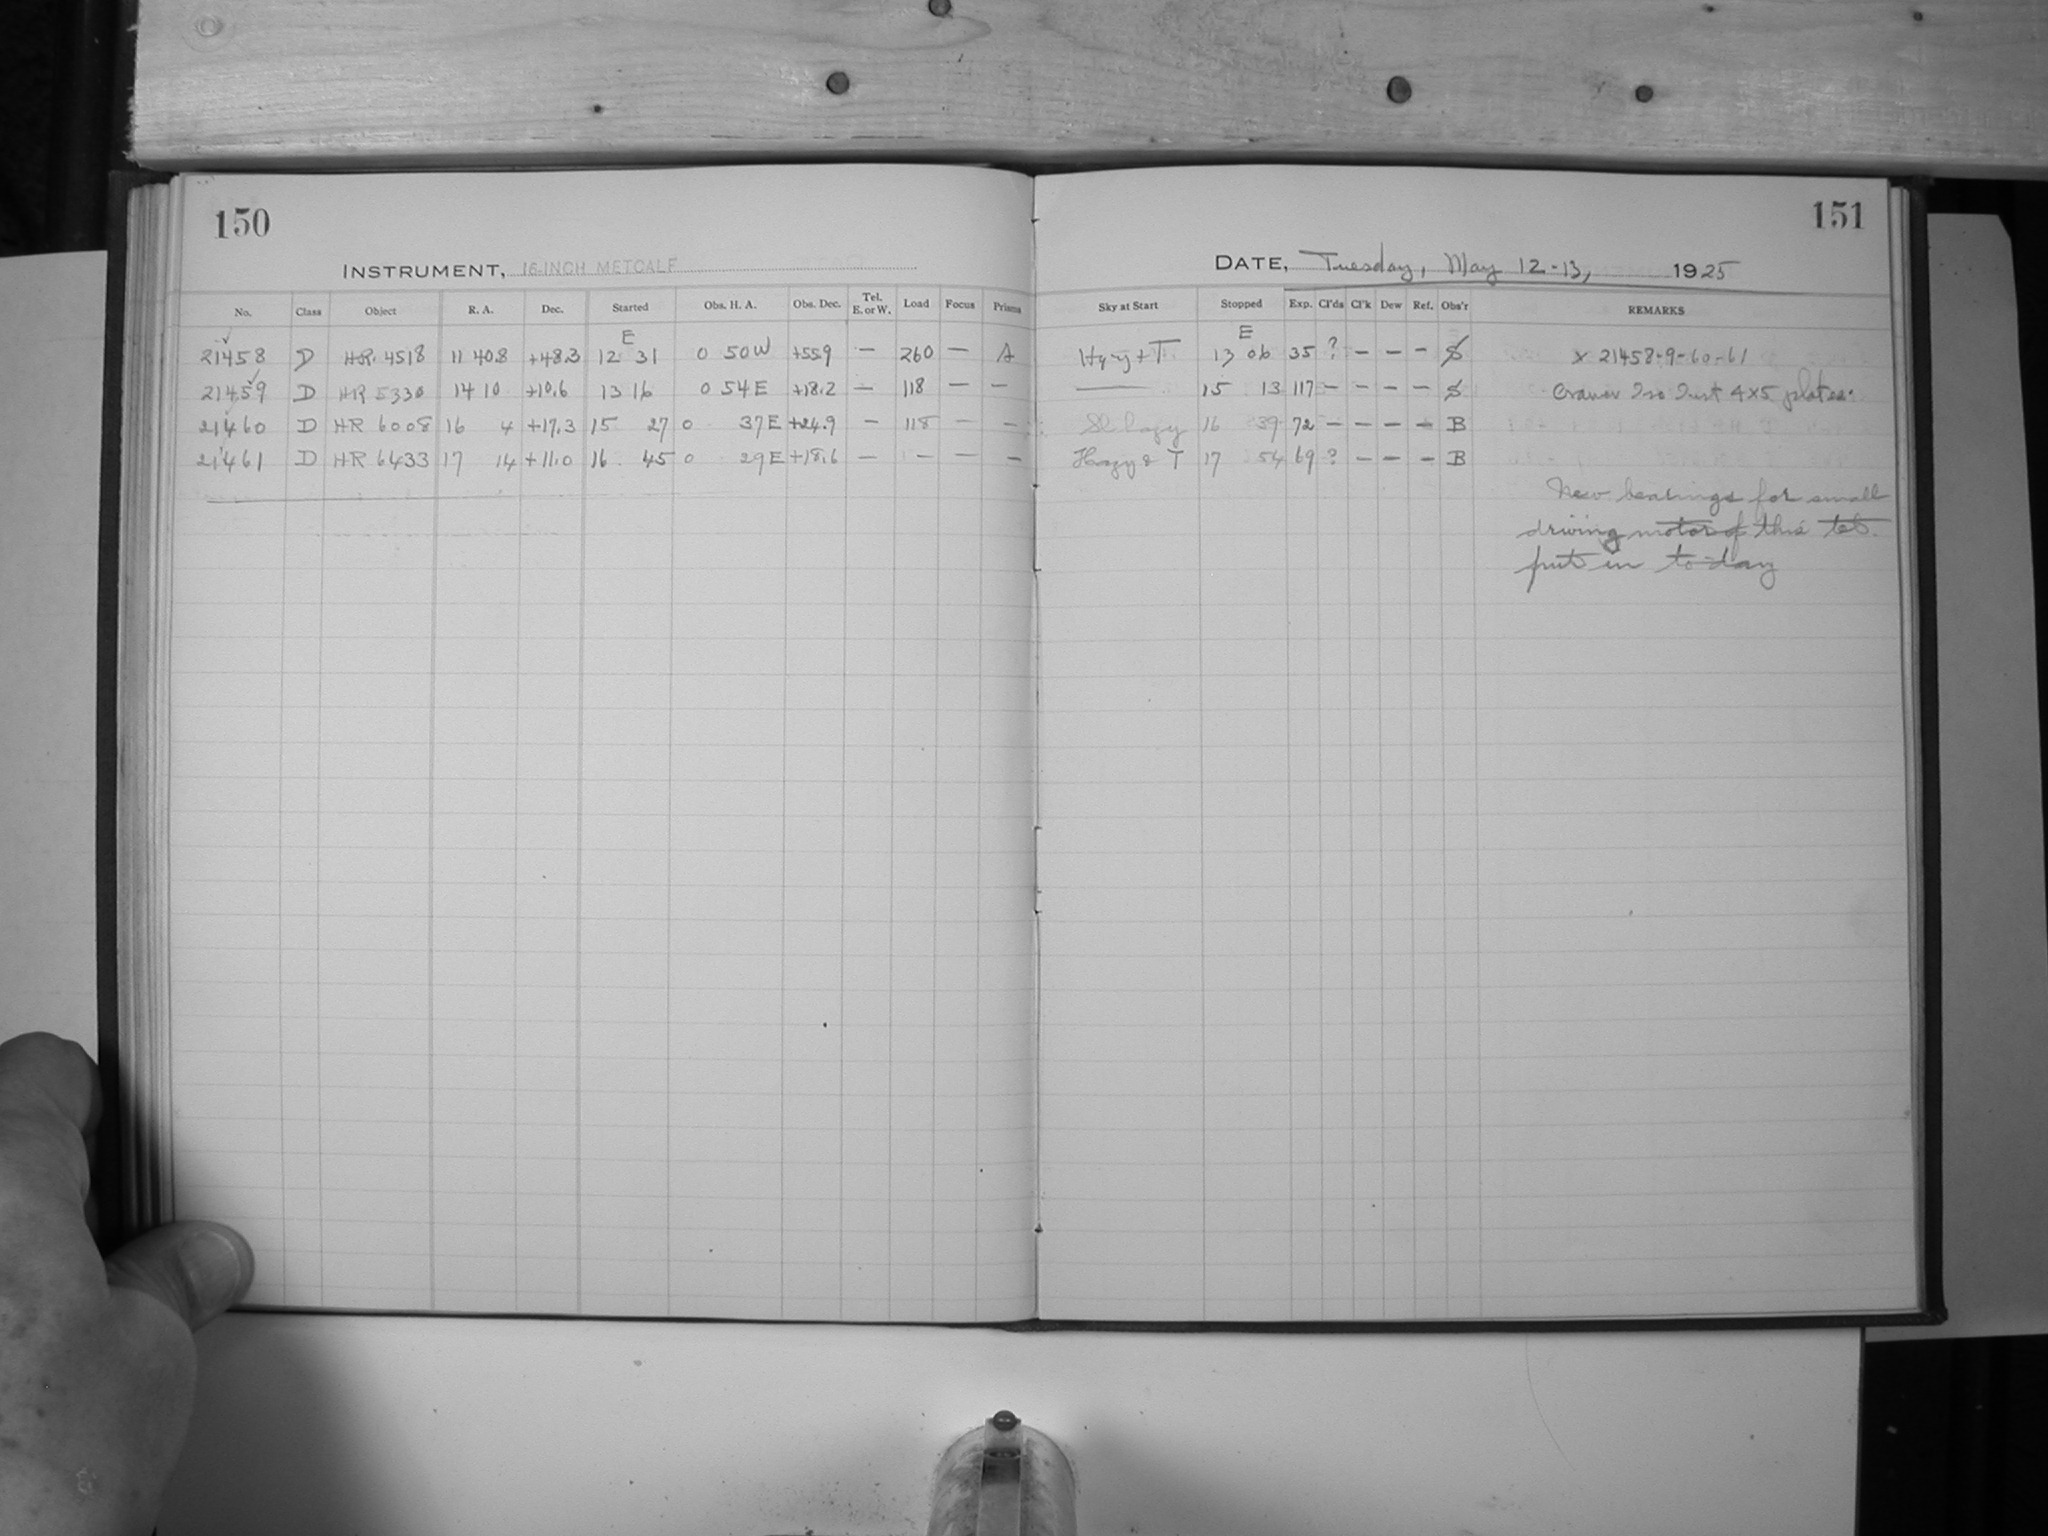 150
151
INSTRUMENT, 16-INCH METCALF
DATE, Tuesday, May 12-13, 1925
No. Class Object R. A. Dec. Started Obs. H. A. Obs. Dec. Tel. E. or W. Load Focus Prisms Sky at Start Stopped Exp. Cl'ds Cl'k Dew Ref. Obs'r REMARKS
E E
21458 D H.R. 4518 11 40.8 +48.3 12 31 0 50W +55.9 — 260 — A Hzy + T 13 06 35 ? — — — S x 21458-9-60-61
21459 D HR 5330 14 10 +10.6 13 16 0 54 E +18.2 — 118 — — —— 15 13 117 — — — — S Cramer Iso Inst 4x5 plates.
21460 D HR 6008 16 4 +17.3 15 27 0 37E +24.9 — 118 — — Sl hazy 16 39 72 — — — — B
21461 D HR 6433 17 14 +11.0 16 45 0 29E +18.6 — — — — Hazy & T 17 54 69 ? — — — B
New bearings for small
driving motor of this tel.
put in to-day